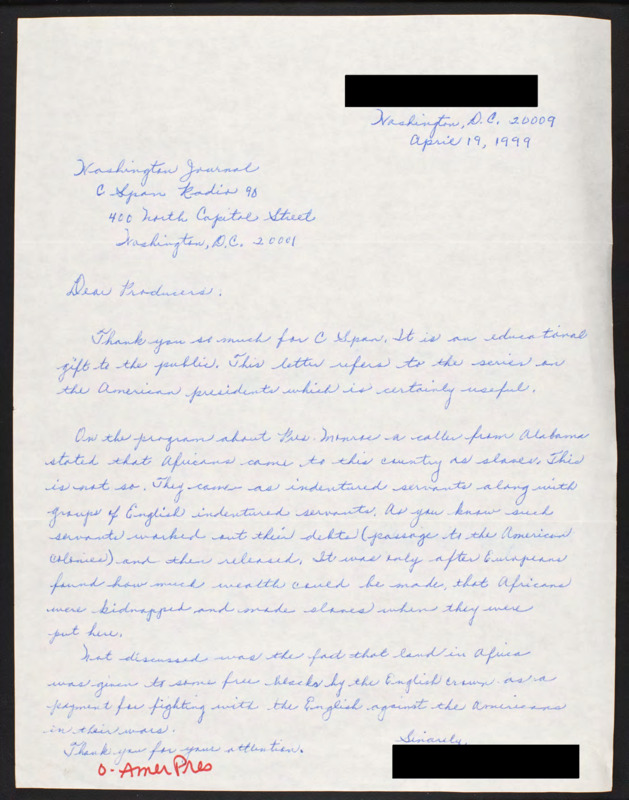 Washington, D.C. 20009
April 19, 1999
Washington Journal
C Span Radio 90
400 North Capitol Street
Washington, D.C. 20001
Dear Producers,
Thank you so much for C Span. It is an educational
gift to the public. This letter refers to the series on
the American presidents which is certainly useful.
On the program about Pres. Monroe a caller from Alabama
stated that Africans came to this country as slaves. This
is not so. They came as indentured servants along with
groups of English indentured servants. As you know such
servants worked out their debts (passage to the American
colonies) and then released. It was only after Europeans
found how much wealth could be made, that Africans
were kidnapped and made slaves when they were
put here.
Not discussed was the fact that land in Africa
was given to some free blacks by the English crown as a
payment for fighting with the English against the Americans
in their wars.
Thank you for your attention.
Sincerely,
O-AmerPres